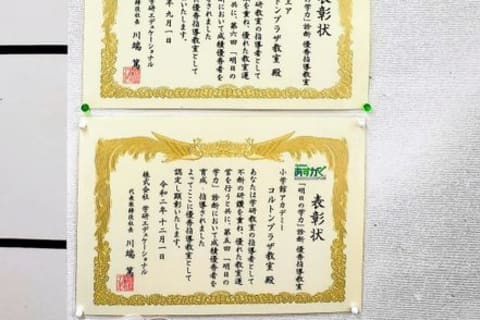 表彰状
の学力」診断 優秀指導教室
ルトンプラザ教室 殿
学研教室の指導者として
を重ね、優れた教室運
共に、第六回「明日の
おいて成績優秀者を
されました
優秀指導教室として
いたします。
年九月一日
研エデュケーショナル
締役社長 川端 篤
あすがく
表彰状
「明日の学力」診断 優秀指導教室
小学館アカデミー
コルトンプラザ教室 殿
あなたは学研教室の指導者として
不断の研鑽を重ね、優れた教室運
営を行うと共に、第五回「明日の
学力」診断において成績優秀者を
育成・指導されました
よってここに優秀指導教室として
認定し顕彰いたします。
令和二年十二月一日
株式会社 学研エデュケーショナル
代表取締役社長 川端 篤